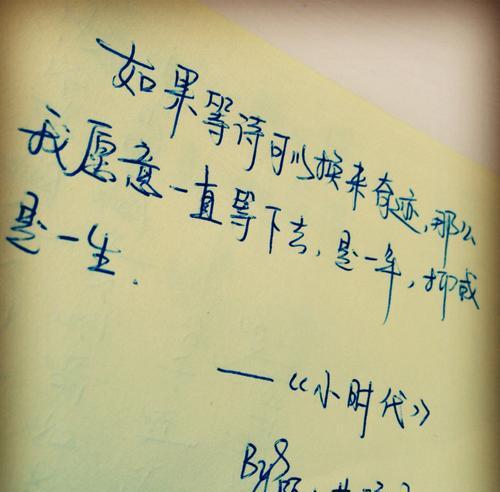 如果等待可以换来奇迹,那么
我愿意一直等下去,是一年,抑或
是一生.
——《小时代》
By